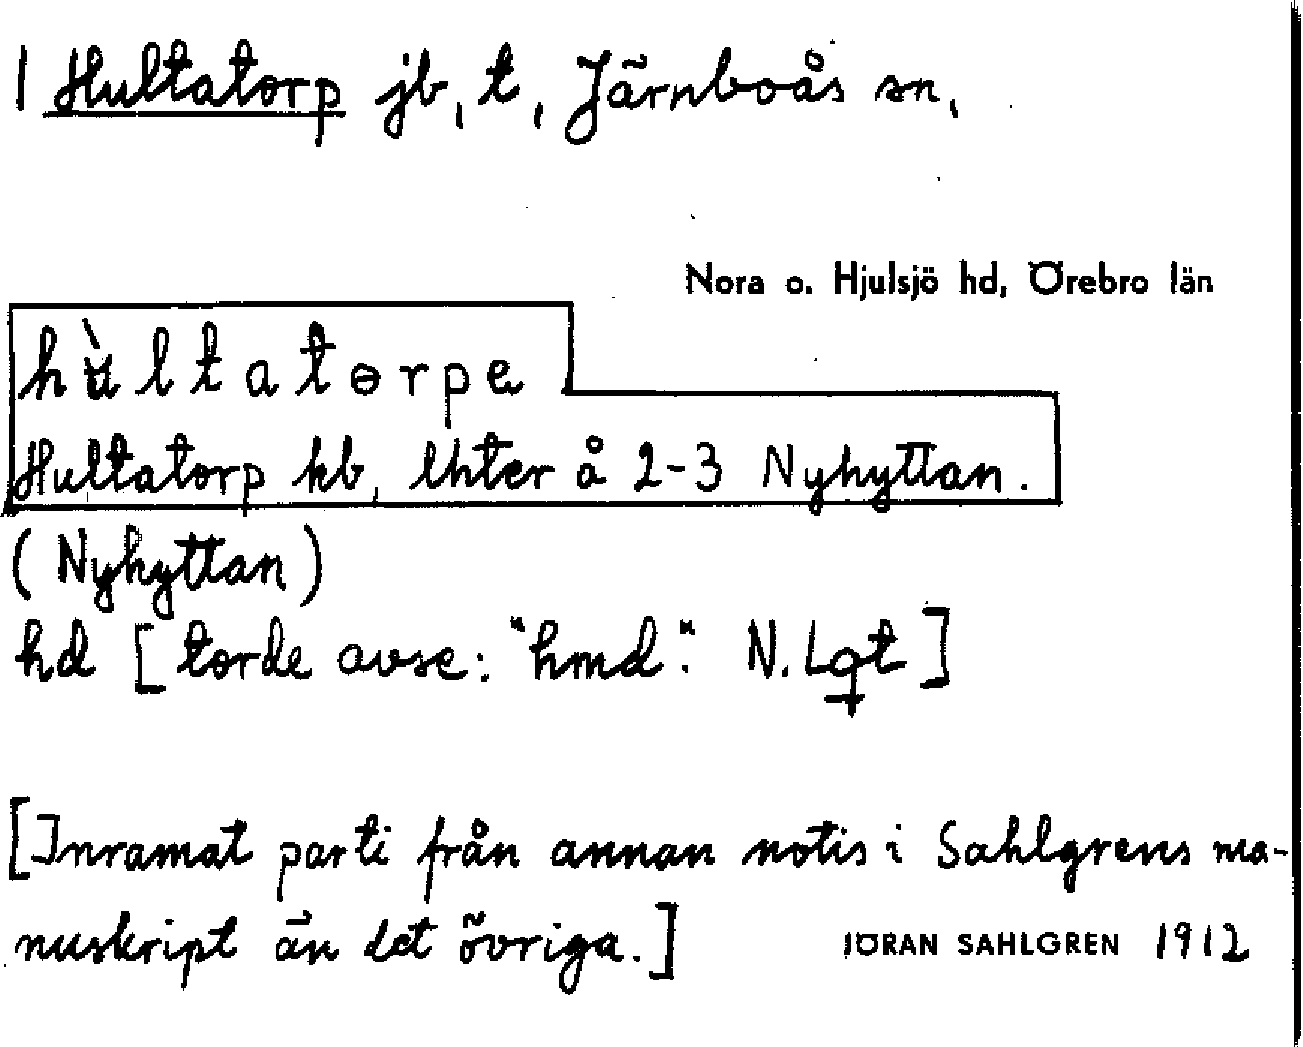 | Hultatorp jb, t, Järnboås sn,
Nora o. Hjulsjö hd, Örebro län
hùltatɵrpe
Hultatorp kb, lhter å 2-3 Nyhyttan.
(Nyhyttan)
hd [torde avse: "hmd". N. Lgt]
[Inramat parti från annan notis i Sahlgrens ma-
nuskript än det övriga.]
JÖRAN SAHLGREN 1912